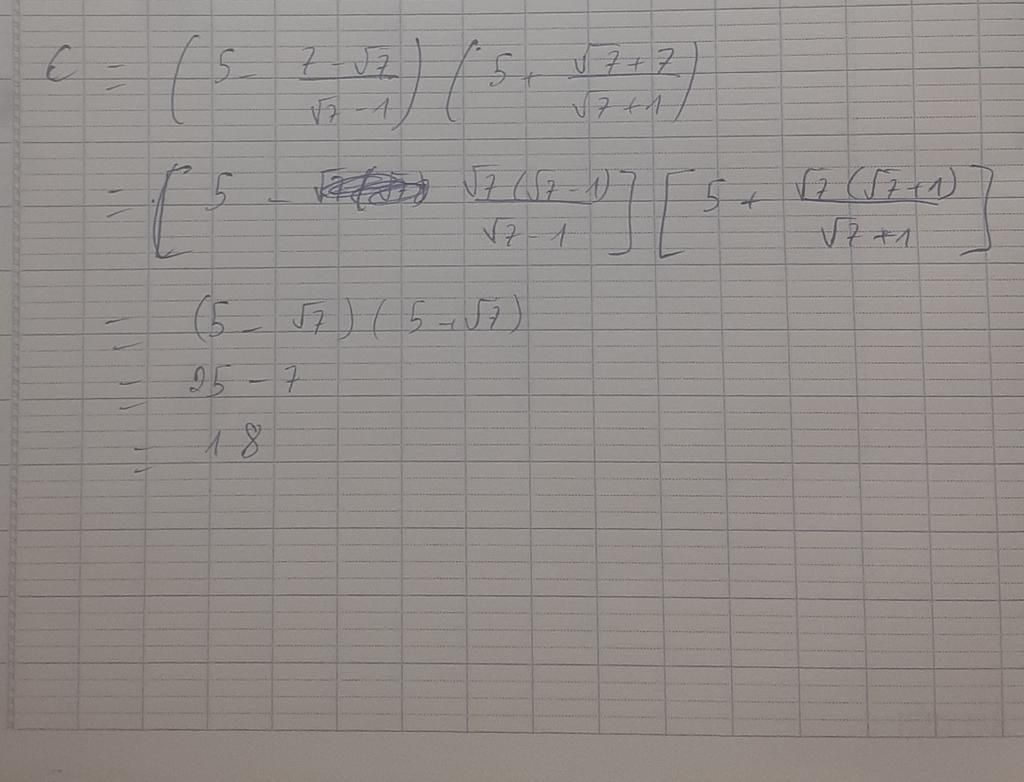 C = (5 - (7 - √7)/(√7 - 1)) (5 + (√7 + 7)/(√7 + 1))
= [5 - (√7 (√7 - 1))/(√7 - 1)] [5 + (√7 (√7 + 1))/(√7 + 1)]
= (5 - √7) (5 + √7)
= 25 - 7
= 18